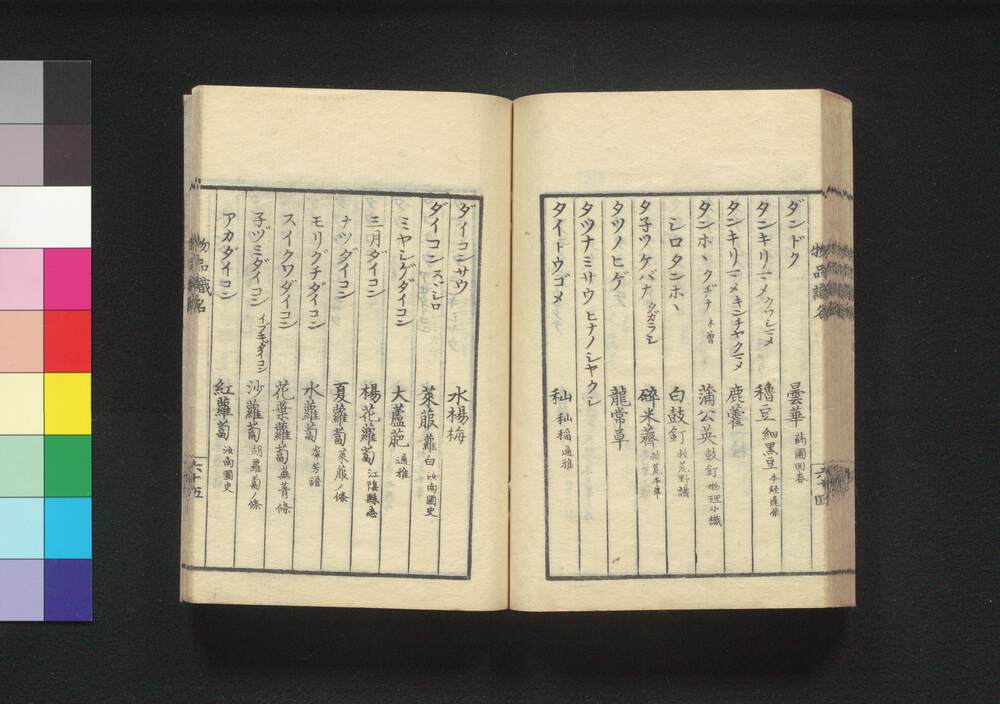 ダンドク 曇華 藥圃同春
タンキリマメ クウシマメ 穭豆 細黒豆 本經逢原
タンキリマメ キンチヤクマメ 鹿藿
タンホヽ クヂナ 木曽 蒲公英 鼓釘 物理小識
シロタンホヽ 白鼓釘 救荒野譜
タ子ツケバナ タガラシ 碎米薺 救荒本草
タツノヒゲ 龍常草
タツナミサウ ヒナノシヤクシ
タイトウゴメ 秈 秈稲 通雅
物品識名
六十四
ダイコンサウ 水楊梅
ダイコン スヾシロ 萊菔 蘿白 汝南圃史
ミヤシゲダイコン 大蘆萉 通雅
三月ダイコン 楊花蘿蔔 江陰縣志
ナツダイコン 夏蘿蔔 萊菔ノ條
モリクチダイコン 水蘿蔔 羣芳譜
スイクワダイコン 花葉蘿蔔 蕪菁條
子ヅミダイコン イブキダイコン 沙蘿蔔 胡蘿蔔ノ條
アカダイコン 紅蘿蔔 汝南圃史
物品識名
六十五